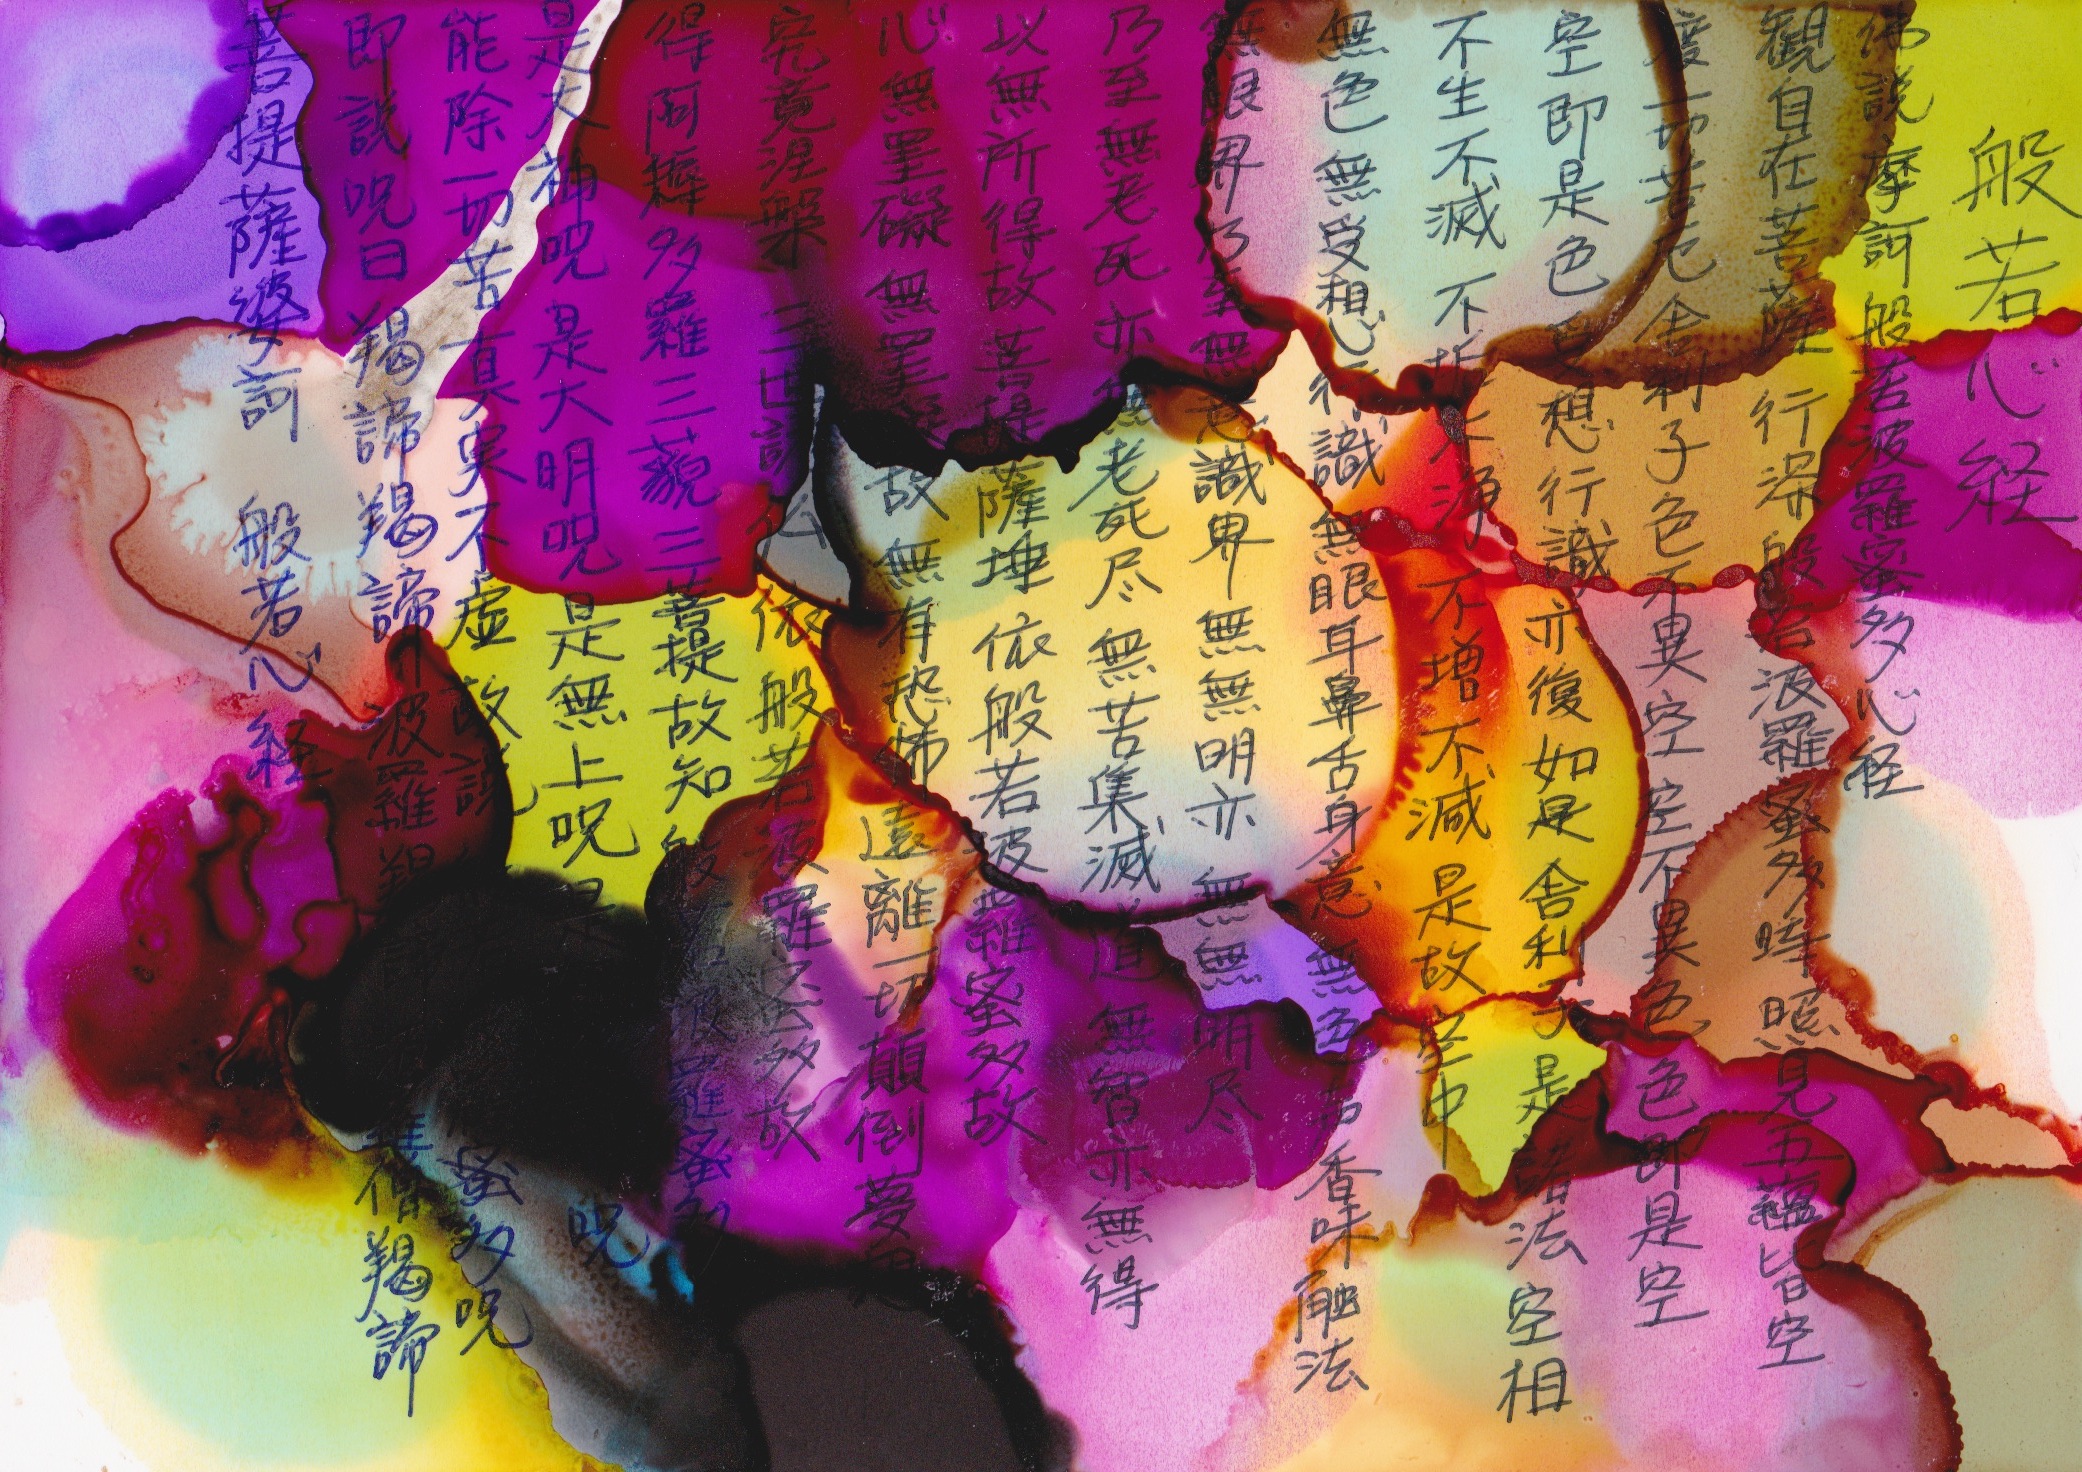 般若心経
佛説摩訶般若波羅蜜多心経
観自在菩薩行深般若波羅蜜多時照見五蘊皆空
度一切苦厄舎利子色不異空空不異色色即是空
空即是色受想行識亦復如是舎利子是諸法空相
不生不滅不垢不浄不増不減是故空中
無色無受想行識無眼耳鼻舌身意無色声香味触法
無眼界乃至無意識界無無明亦無無明尽
乃至無老死亦無老死尽無苦集滅道無智亦無得
以無所得故菩提薩埵依般若波羅蜜多故
心無罣礙無罣礙故無有恐怖遠離一切顛倒夢想
究竟涅槃三世諸仏依般若波羅蜜多故
得阿耨多羅三藐三菩提故知般若波羅蜜多
是大神呪是大明呪是無上呪是呪
能除一切苦真実不虚故説蜜多呪
即説呪曰羯諦羯諦波羅羯諦僧羯諦
菩提薩婆訶般若心経